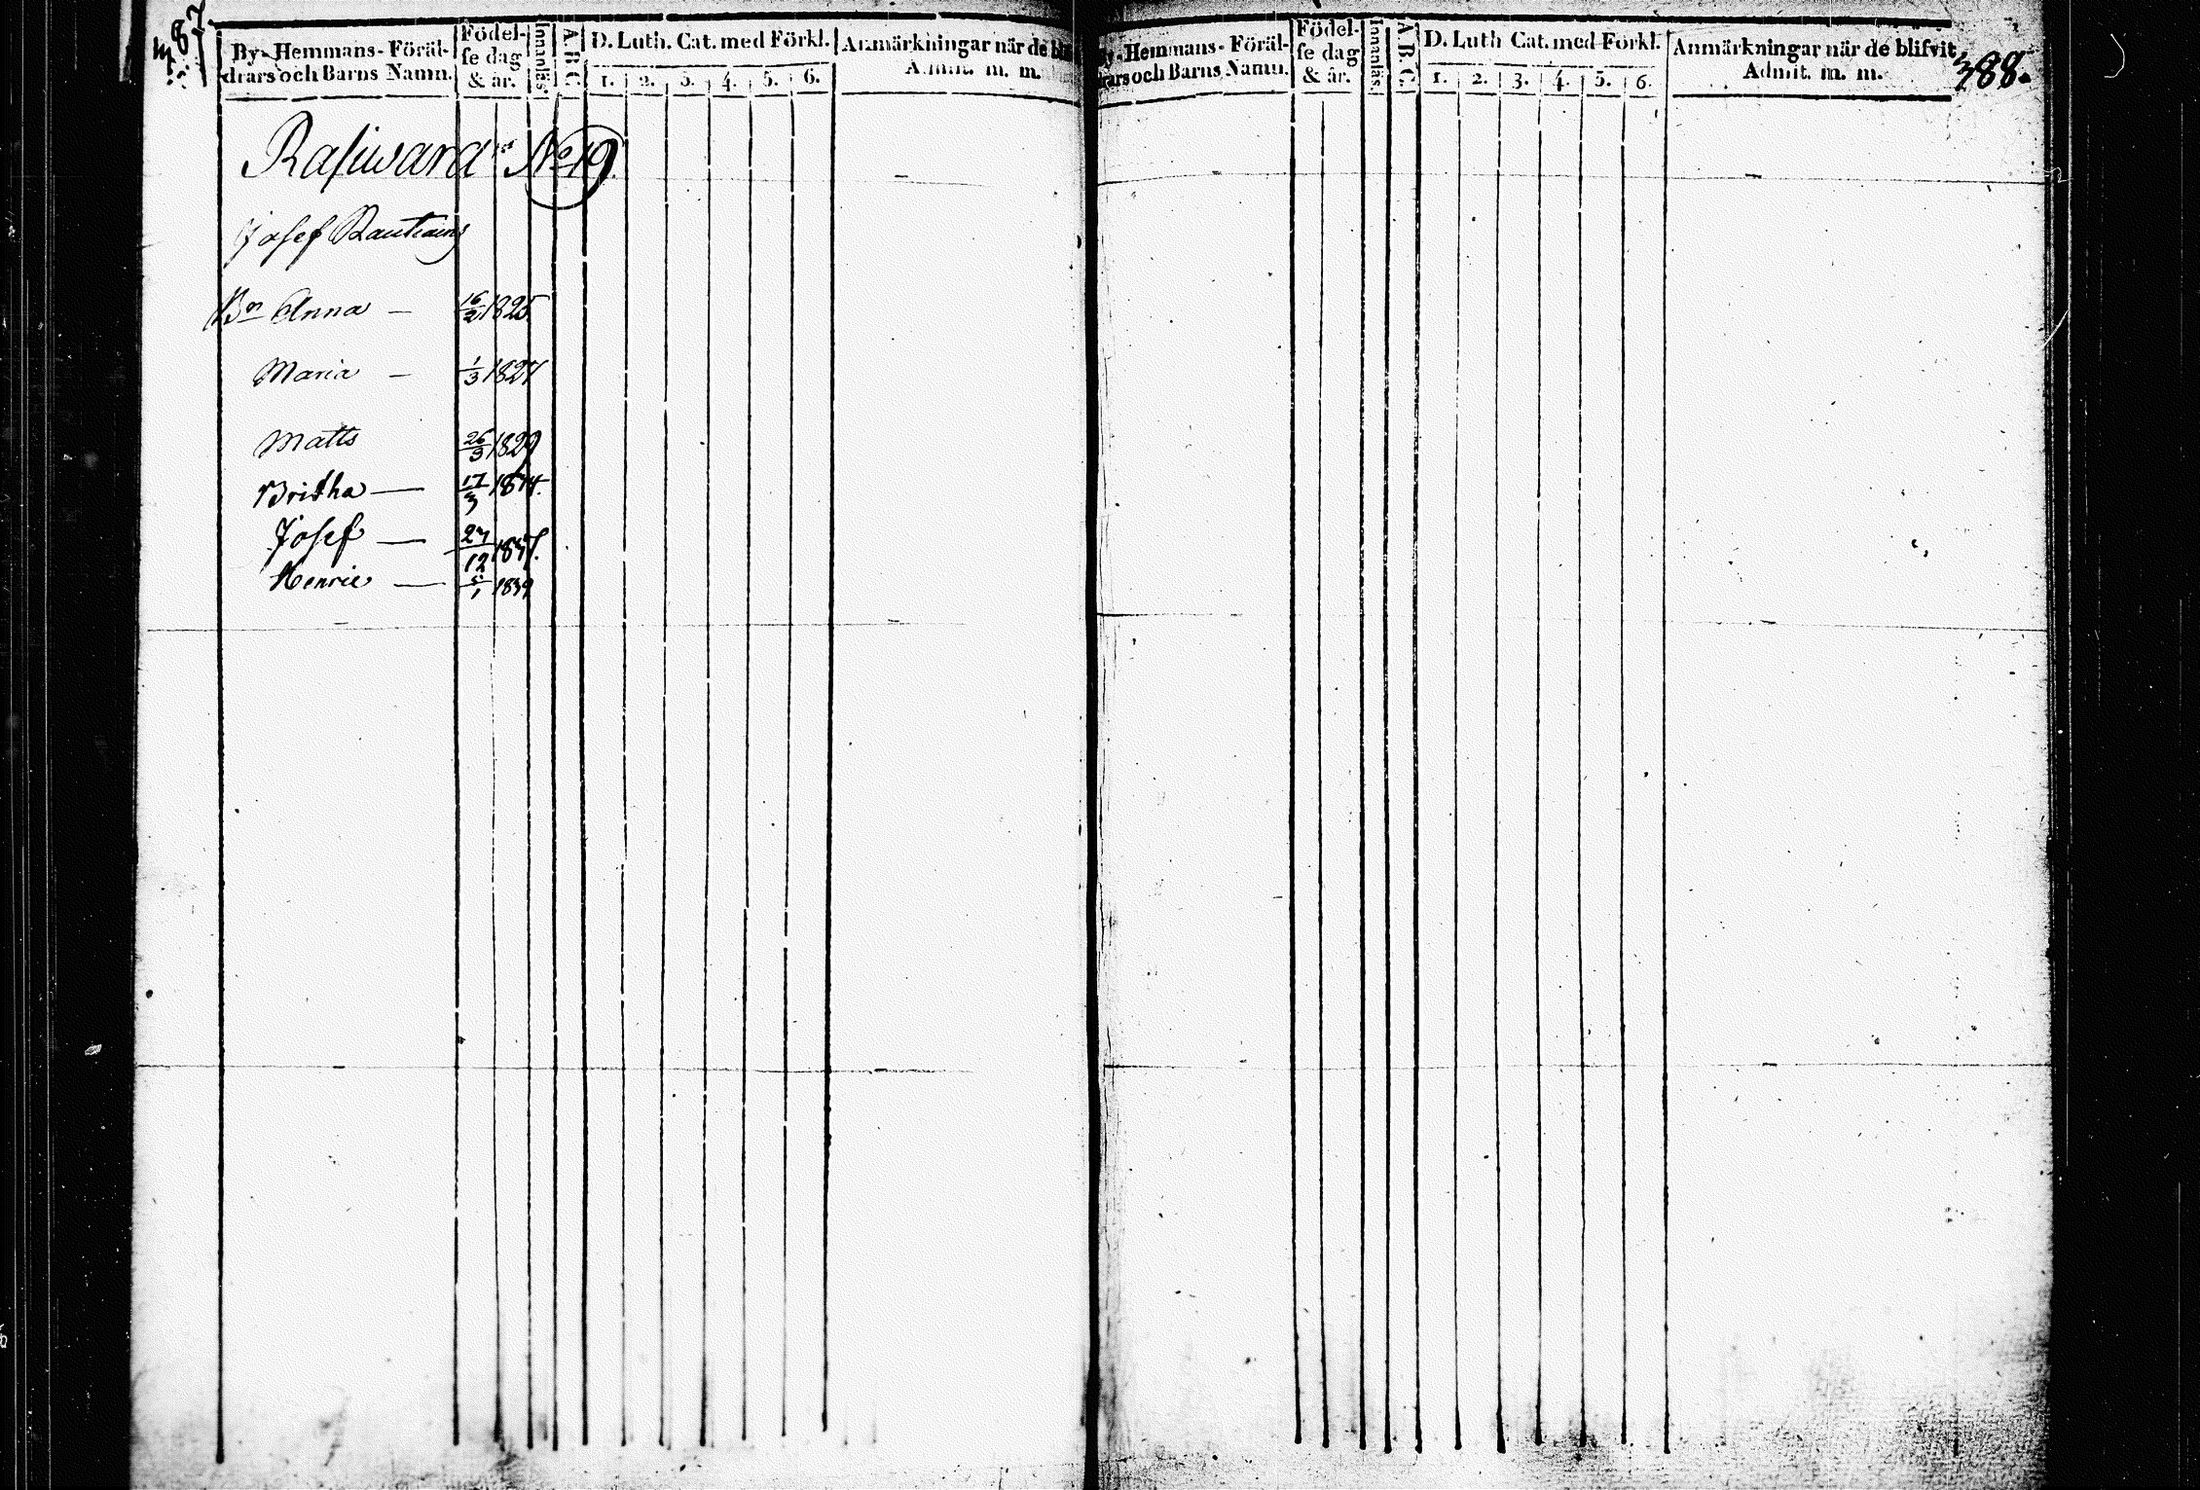 387
By- Hemmans- Föräl-
drars och Barns Namn.
Födel-
se dag
& år.
Innanläs.
A. B. C.
D. Luth. Cat. med Förkl.
1. 2. 3. 4. 5. 6.
Anmärkningar när de
Admit. m. m.
Rasiwara No 19.
Josef Rautiains
Bn Anna — 16/2 1825
Maria — 1/3 1827
Matts 26/3 1829
Britha — 17/3
Josef — 27/12
Henric — 5/1 1839
By- Hemmans- Föräl-
drars och Barns Namn.
Födel-
se dag
& år.
Innanläs.
A. B. C.
D. Luth Cat. med Förkl.
1. 2. 3. 4. 5. 6.
Anmärkningar när de blifvit
Admit. m. m.
388.